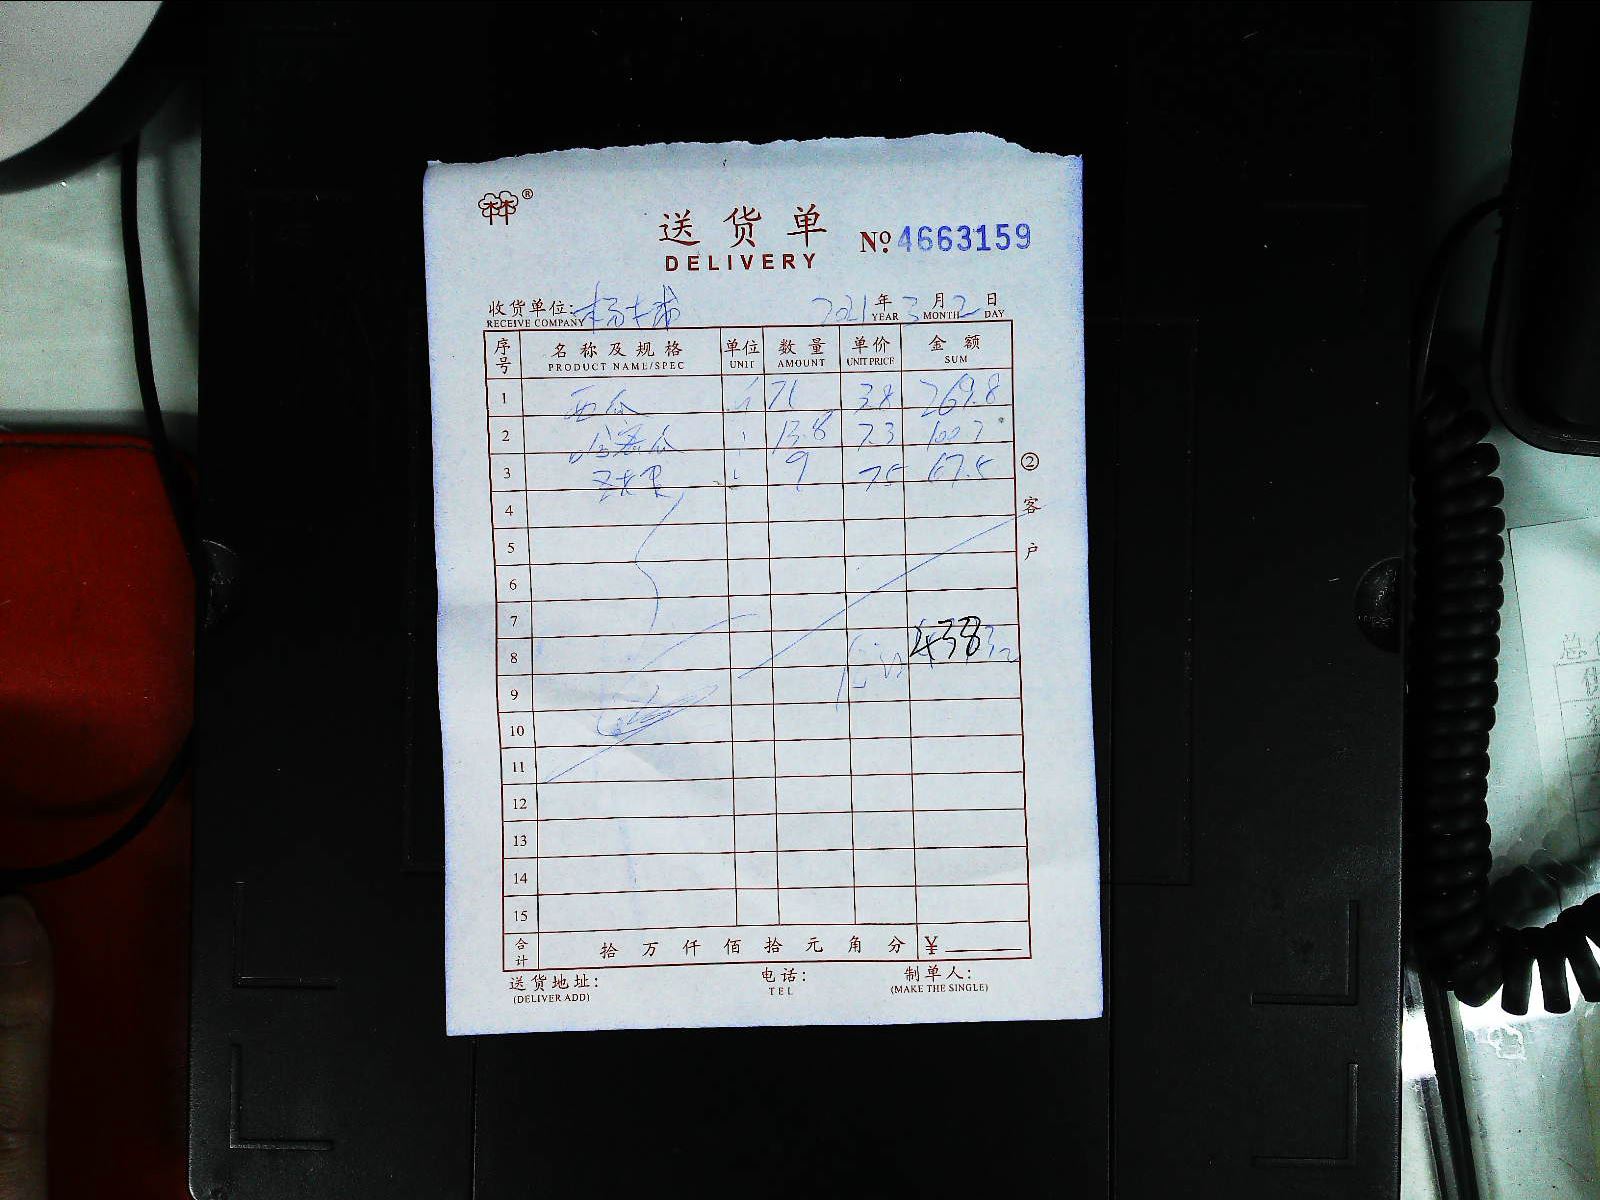 林®
送货单
DELIVERY
No. 4663159
收货单位:
RECEIVE COMPANY
2021年3月2日
YEAR MONTH DAY
序号 名称及规格 单位 数量 单价 金额
PRODUCT NAME/SPEC UNIT AMOUNT UNIT PRICE SUM
1 西瓜 71 3.8 269.8
2 哈密瓜 13.8 7.3 100.7
3 9 7.5 67.5
4
5
6
7
8 438
9
10
11
12
13
14
15
合计 拾万仟佰拾元角分 ¥
②客户
送货地址: 电话: 制单人:
(DELIVER ADD) TEL (MAKE THE SINGLE)